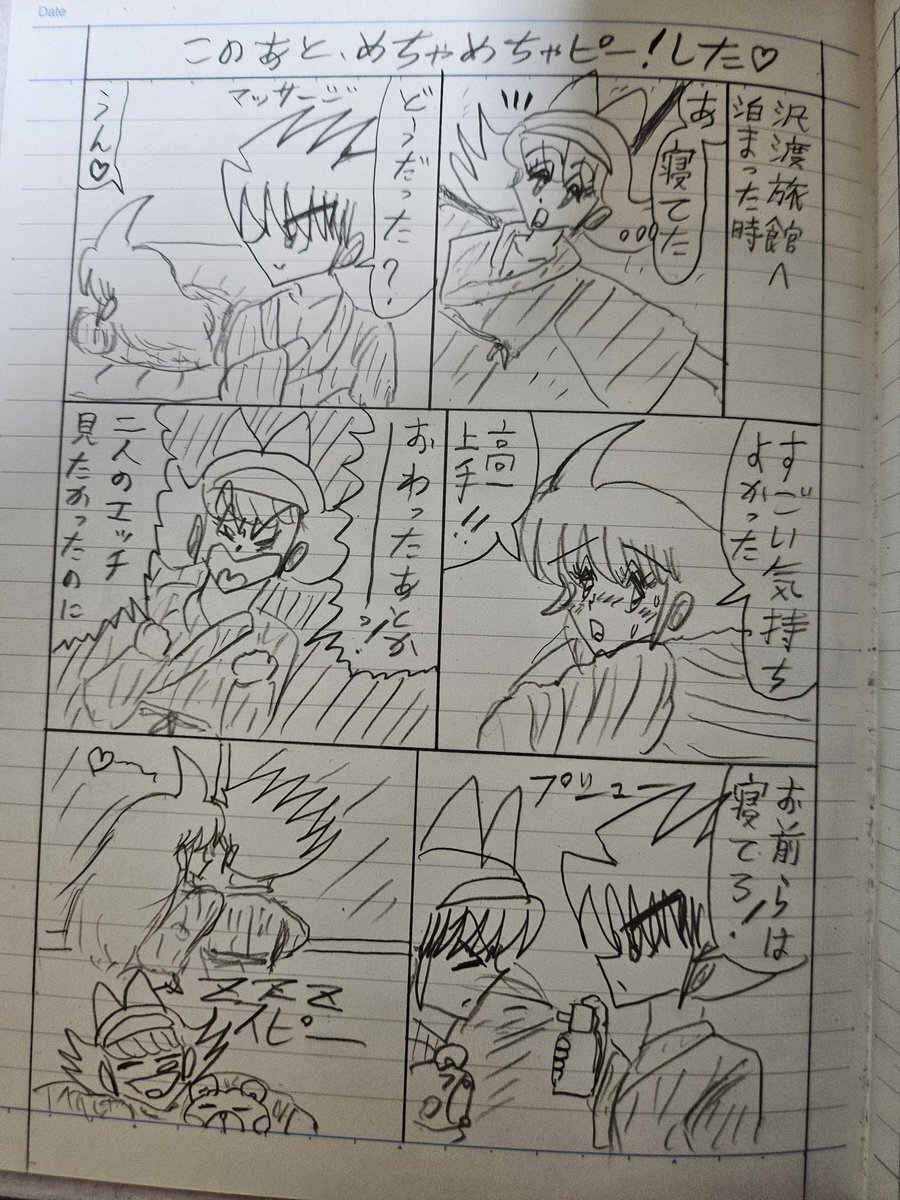 Date
このあと、めちゃめちゃピー!した♡
沢渡旅館へ
泊まった時
あ
寝てた
マッサージ
どーうだった?
うん♡
すごい気持ち
よかった
高一
上手!!
おわったあ
二人のエッチ
見たかったのに
お前らは
寝てろ!
プシュー
zzz
スピー